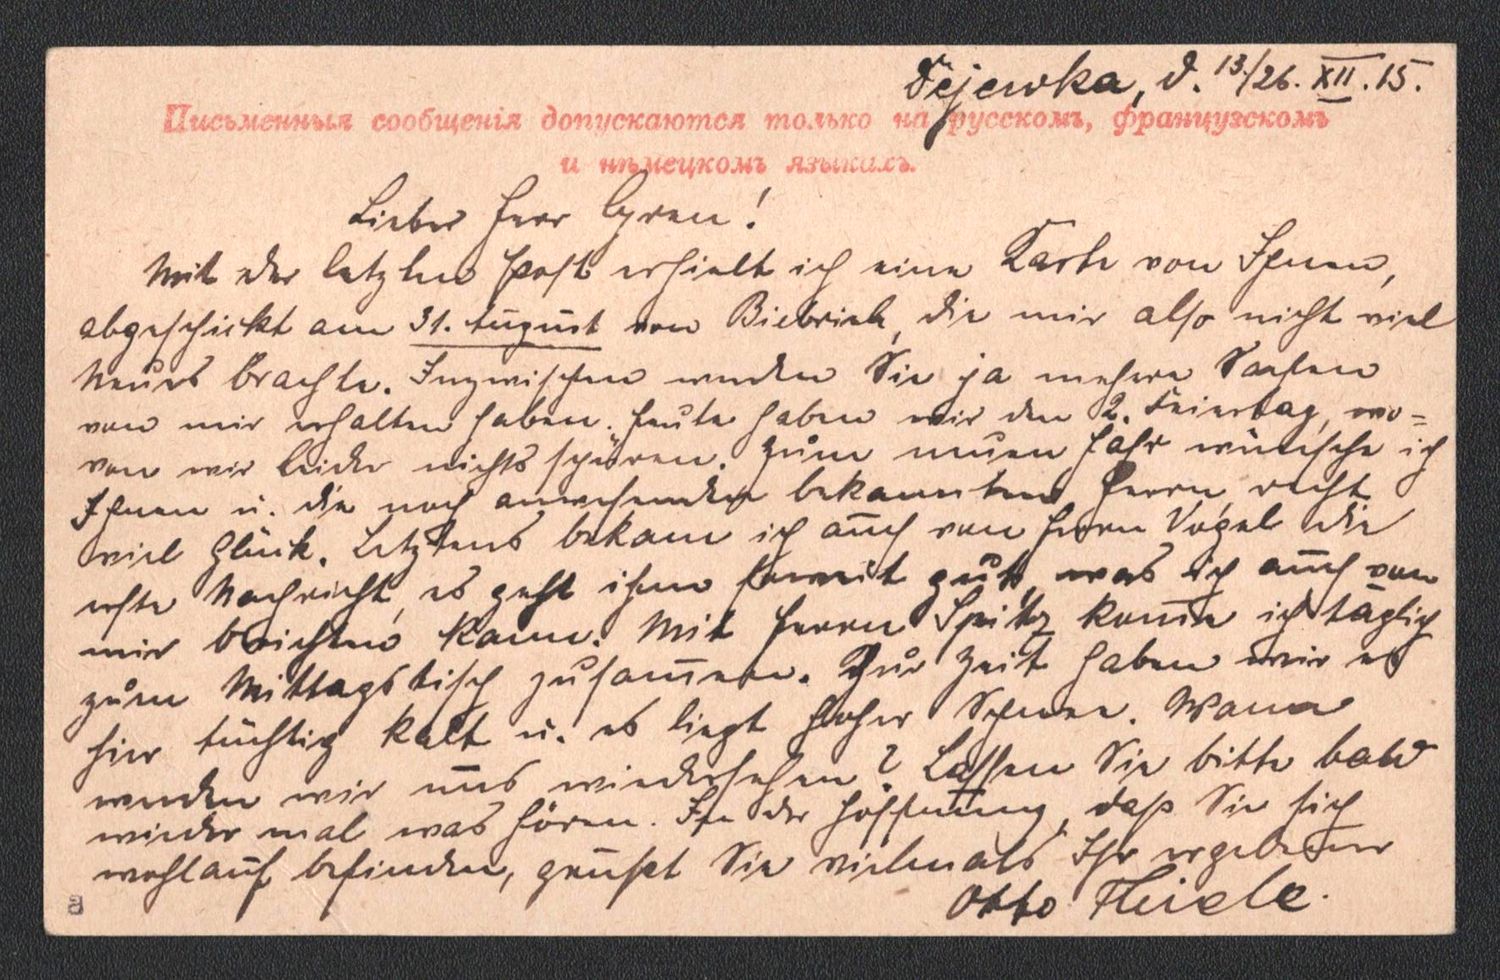 Fejewka, d. 13./26. XII. 15.
Письменныя сообщенія допускаются только на русскомъ, французскомъ
и нѣмецкомъ языкахъ.
Lieber Herr Gren!
Mit der letzten Post erhielt ich eine Karte von Ihnen,
abgeschickt am 31. August von Biebrich, die mir also nicht viel
Neues brachte. Inzwischen werden Sie ja mehere Sachen
von mir erhalten haben. Heute haben wir den 2. Feiertag, wo=
von wir leider nichts spüren. Zum neuen Jahr wünsche ich
Ihnen u. die noch anwesenden bekannten Herrn recht
viel Glück. Letztens bekam ich auch von Herrn Vogel die
erste Nachricht, es geht ihm soweit gut, was ich auch von
mir berichten kann. Mit Herrn Spitz kom̅e ich täglich
zum Mittagstisch zusam̅en. Zur Zeit haben wir es
hier tüchtig kalt u. es liegt hoher Schnee. Wann
werden wir uns wiedersehen? Lassen Sie bitte bald
wieder mal was hören. In der Hoffnung, daß Sie sich
wohlauf befinden, grüßt Sie vielmals Ihr ergebener
Otto Thiele.